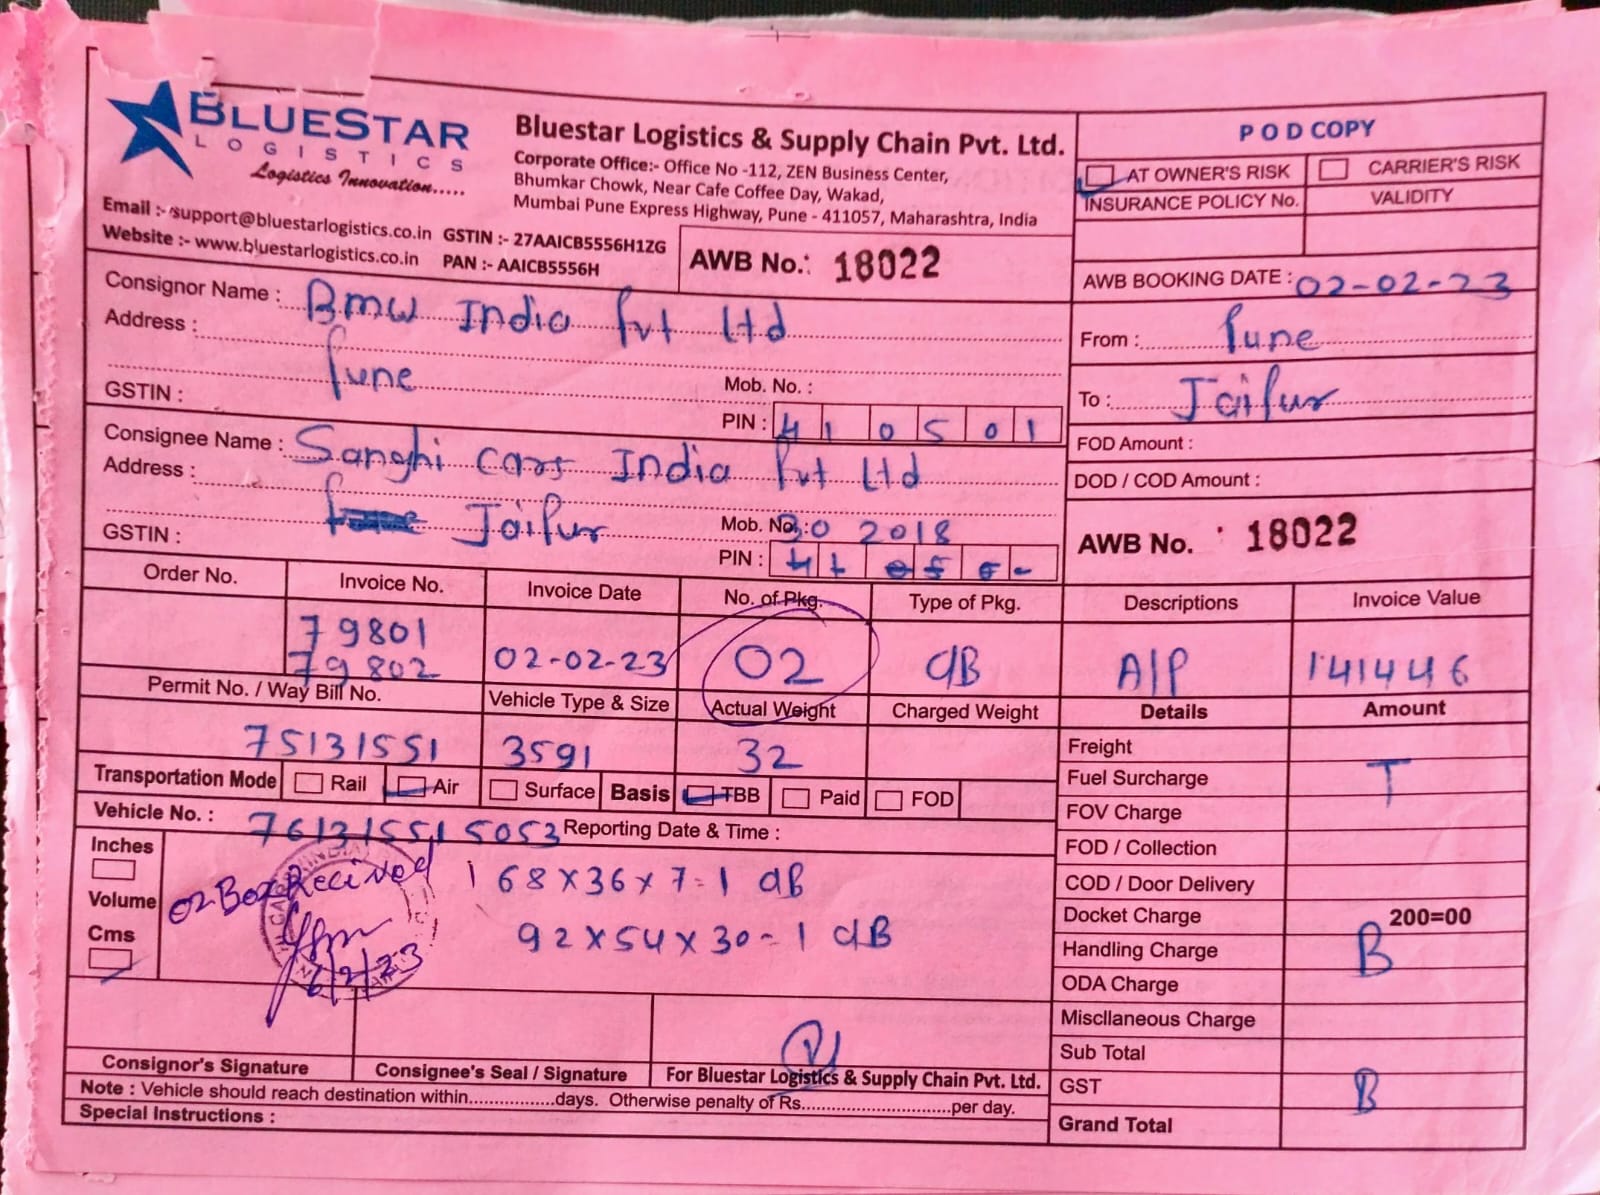 BLUESTAR
LOGISTICS
Logistics Innovation.....
Email :- support@bluestarlogistics.co.in
Website :- www.bluestarlogistics.co.in
GSTIN :- 27AAICB5556H1ZG
PAN :- AAICB5556H
Bluestar Logistics & Supply Chain Pvt. Ltd.
Corporate Office:- Office No -112, ZEN Business Center,
Bhumkar Chowk, Near Cafe Coffee Day, Wakad,
Mumbai Pune Express Highway, Pune - 411057, Maharashtra, India
AWB No.: 18022
POD COPY
AT OWNER'S RISK CARRIER'S RISK
INSURANCE POLICY No. VALIDITY
AWB BOOKING DATE : 02-02-23
From : Pune
To : Jaipur
FOD Amount :
DOD / COD Amount :
AWB No. 18022
Consignor Name : Bmw India Pvt Ltd
Address :
Pune
GSTIN : Mob. No. :
PIN : 410501
Consignee Name : Sanghi Cars India Pvt Ltd
Address :
Jaipur
GSTIN : Mob. No. : 302018
PIN :
Order No. Invoice No. Invoice Date No. of Pkg. Type of Pkg. Descriptions Invoice Value
79801
79802 02-02-23 02 CB A/P 141446
Permit No. / Way Bill No. Vehicle Type & Size Actual Weight Charged Weight Details Amount
75131551 3591 32
Transportation Mode Rail Air Surface Basis TBB Paid FOD
Vehicle No. : 761315515053 Reporting Date & Time :
Inches
Volume
Cms
02 Box Recived
6/2/23
68x36x7-1 CB
92x54x30-1 CB
Freight
Fuel Surcharge T
FOV Charge
FOD / Collection
COD / Door Delivery
Docket Charge 200=00
Handling Charge B
ODA Charge
Miscllaneous Charge
Sub Total
GST B
Grand Total
Consignor's Signature Consignee's Seal / Signature For Bluestar Logistics & Supply Chain Pvt. Ltd.
Note : Vehicle should reach destination within.................days. Otherwise penalty of Rs.............................per day.
Special Instructions :